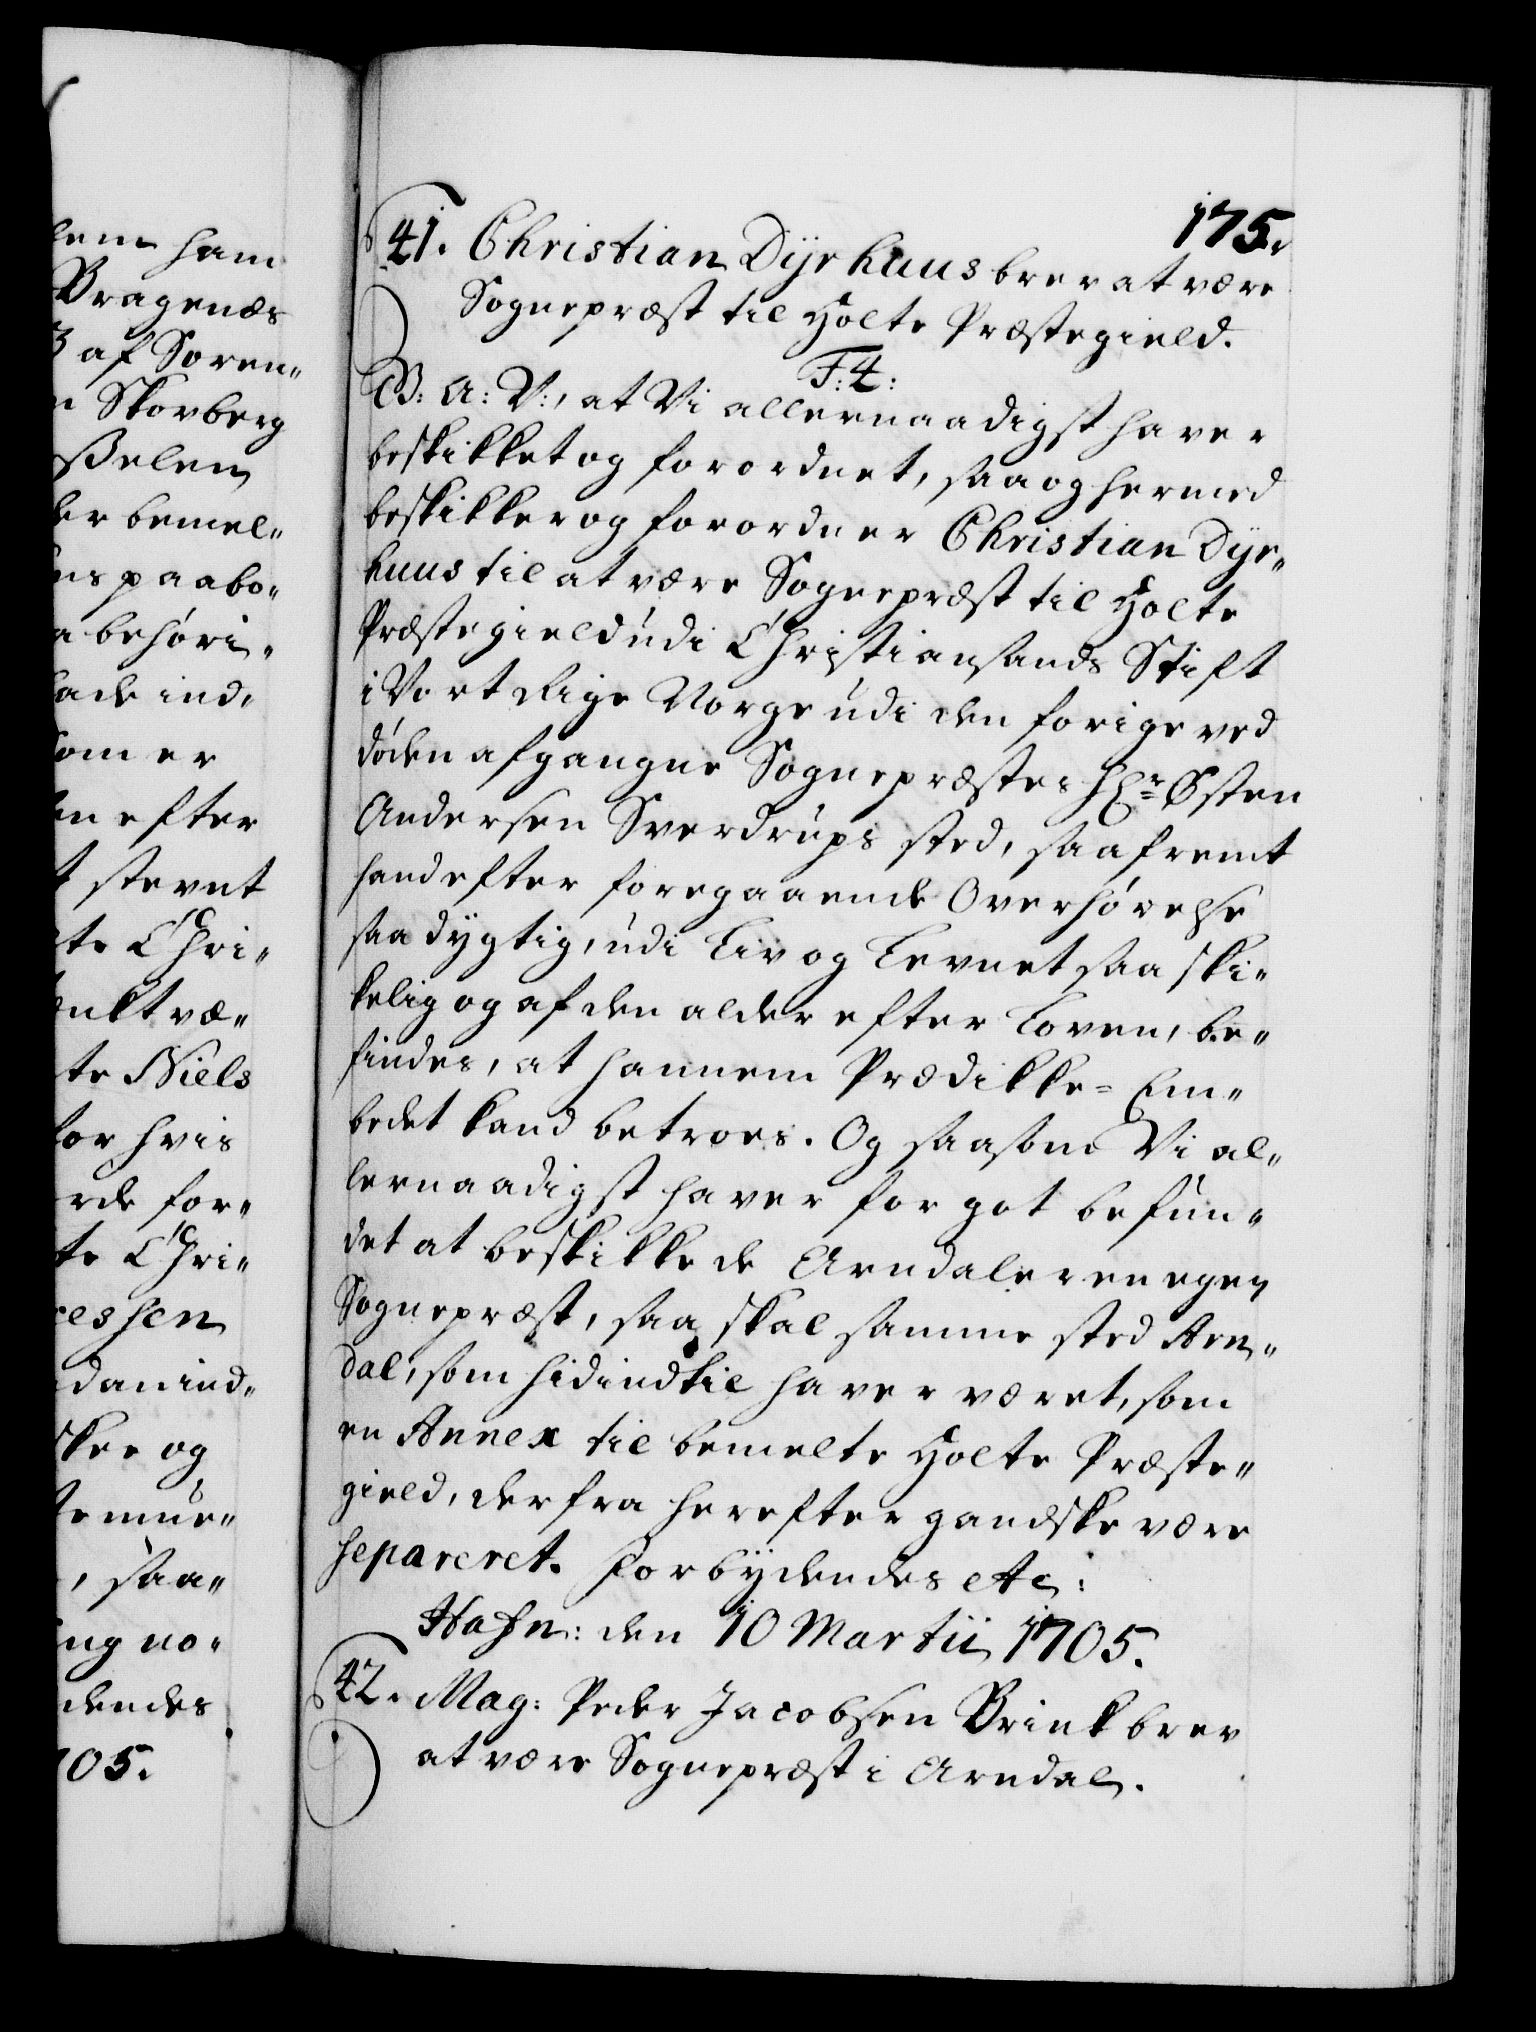 lem ham
Bragenæs
3 af Soren„
n Skovberg
sselen
der bemel„
ns paabo„
a behøri„
lade ind„
som er
en efter
t stevnt
te Chri„
enkt væ„
te Niels
for hvis
rde for„
te Chri„
cessen
dan ind„
sker og
temue„
, saa„
ing no„
dendes
705.
175.
41. Christian Dyrhuus brev at være
Sognepræst til Holte Præstegield.
F: 4:
G: A: V:, at Vi allernaadigst haver
beskikket og forordnet, saa og hermed
beskikker og forordner Christian Dyr„
huus til at være Sognepræst til Holte
Præstegield udi Christiansands Stift
i Vort Rige Norge udi den forige ved
døden afgangne Sognepræstes Hr: Østen
Andersen Sverdrups sted, saafremt
hand efter foregaaende Overhørelse
saa dygtig, udi Liv og Levnet saa ski„
kelig og af den alder efter Loven, be„
findes, at hannem Prædikke= Em„
bedet kand betroes. Og saasom Vi al„
lernaadigst haver for got befun„
det at beskikke de Arndaler en egen
Sognepræst, saa skal samme sted Arn„
dal, som hidindtil haver været, som
en Annex til bemelte Holte Præste„
gield, derfra herefter gandske være
separeret. Forbydendes etc:
Hafn: den 10 Martii 1705.
42. Mag: Peder Jacobsen Brink brev
at være Sognepræst i Arndal.